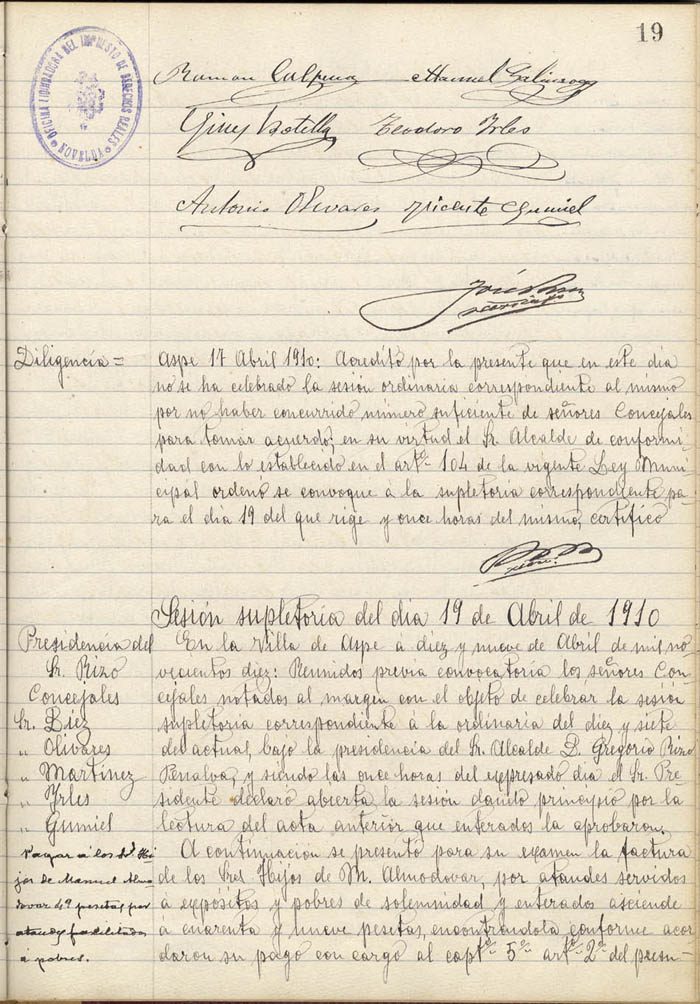 19
OFICINA LIQUIDADORA DEL IMPUESTO DE DERECHOS REALES
NOVELDA
Ramón Calpena Manuel Galinsoga
Gines Botella Teodoro Yrles
Antonio Olivares Vicente Gumiel
José
secretario
Diligencia=
Aspe 17 Abril 1910: Acredito por la presente que en este dia
no se ha celebrado la sesión ordinaria correspondiente al mismo
por no haber concurrido número suficiente de señores Concejales
para tomar acuerdo; en su virtud el Sr. Alcalde de conformi
dad con lo establecido en el artº. 104 de la vigente Ley Muni
cipal ordenó se convoque á la supletoria correspondiente pa
ra el dia 19 del que rige y once horas del mismo, certifico
Sesión supletoria del dia 19 de Abril de 1910
Presidencia del
Sr. Rizo
Concejales
Sr. Diez
" Olivares
" Martinez
" Yrles
" Gumiel
En la Villa de Aspe á diez y nueve de Abril de mil no
vecientos diez: Reunidos previa convocatoria los señores Con
cejales notados al margen con el objeto de celebrar la sesión
supletoria correspondiente á la ordinaria del diez y siete
del actual, bajo la presidencia del Sr. Alcalde D. Gregorio Rizo
Penalva, y siendo las once horas del expresado dia el Sr. Pre
sidente declaró abierta la sesión dando principio por la
lectura del acta anterior que enterados la aprobaron.
Pagar á los Srs. Hi
jos de Manuel Almo
dovar 49 pesetas por
ataudes facilitados
a pobres.
A continuación se presentó para su examen la factura
de los Sres. Hijos de M. Almodovar, por ataudes servidos
á expósitos y pobres de solemnidad y enterados asciende
á cuarenta y nueve pesetas, encontrandola conforme acor
daron su pago con cargo al captº. 5º. artº. 2º. del presu-